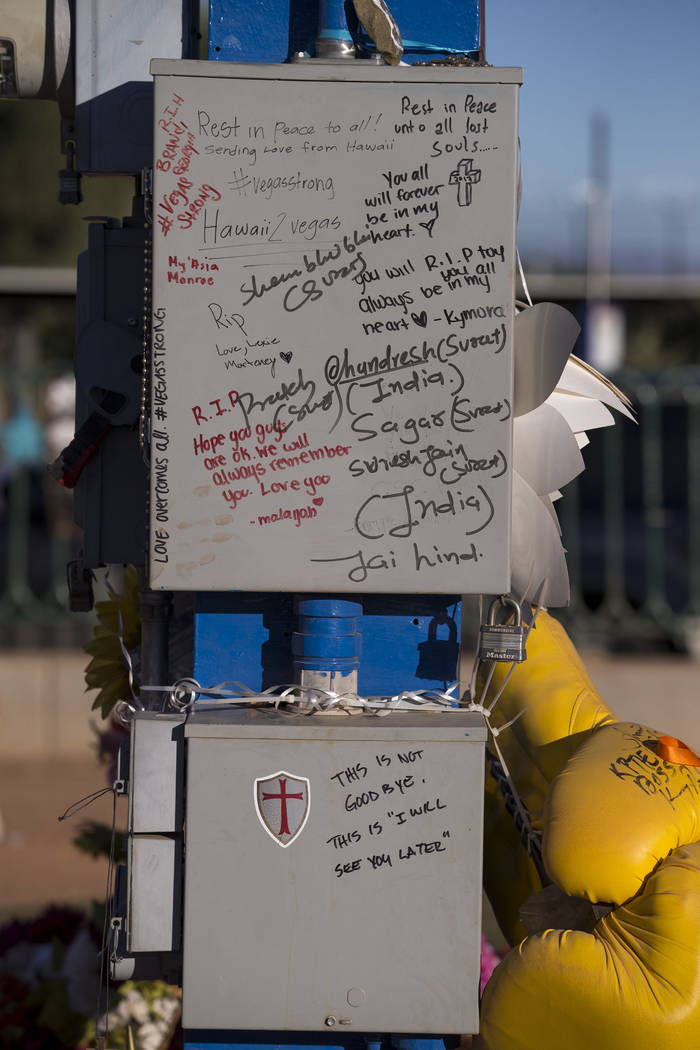 R.I.H
BRANDY
#VEGAS
STRONG
My'Asia
Monroe
Rest in Peace to all!
Sending Love from Hawaii
#Vegasstrong
Hawaii2vegas
Rest in Peace
unto all lost
souls.....
You all
will forever
be in my
heart.
2017
(Surat)
you will R.I.P
you all
always be in my
heart - Kymora
Rip
Love, Lexie
LOVE overcomes all. #VEGASSTRONG
(Surat)
R.I.P
Hope you guys
are ok. We will
always remember
you. Love you
-malayah
@handresh (Surat)
(India.)
Sagar (Surat)
Suresh Jain
(Surat)
(India)
Jai hind.
Master
THIS IS NOT
GOODBYE.
THIS IS "I WILL
SEE YOU LATER"